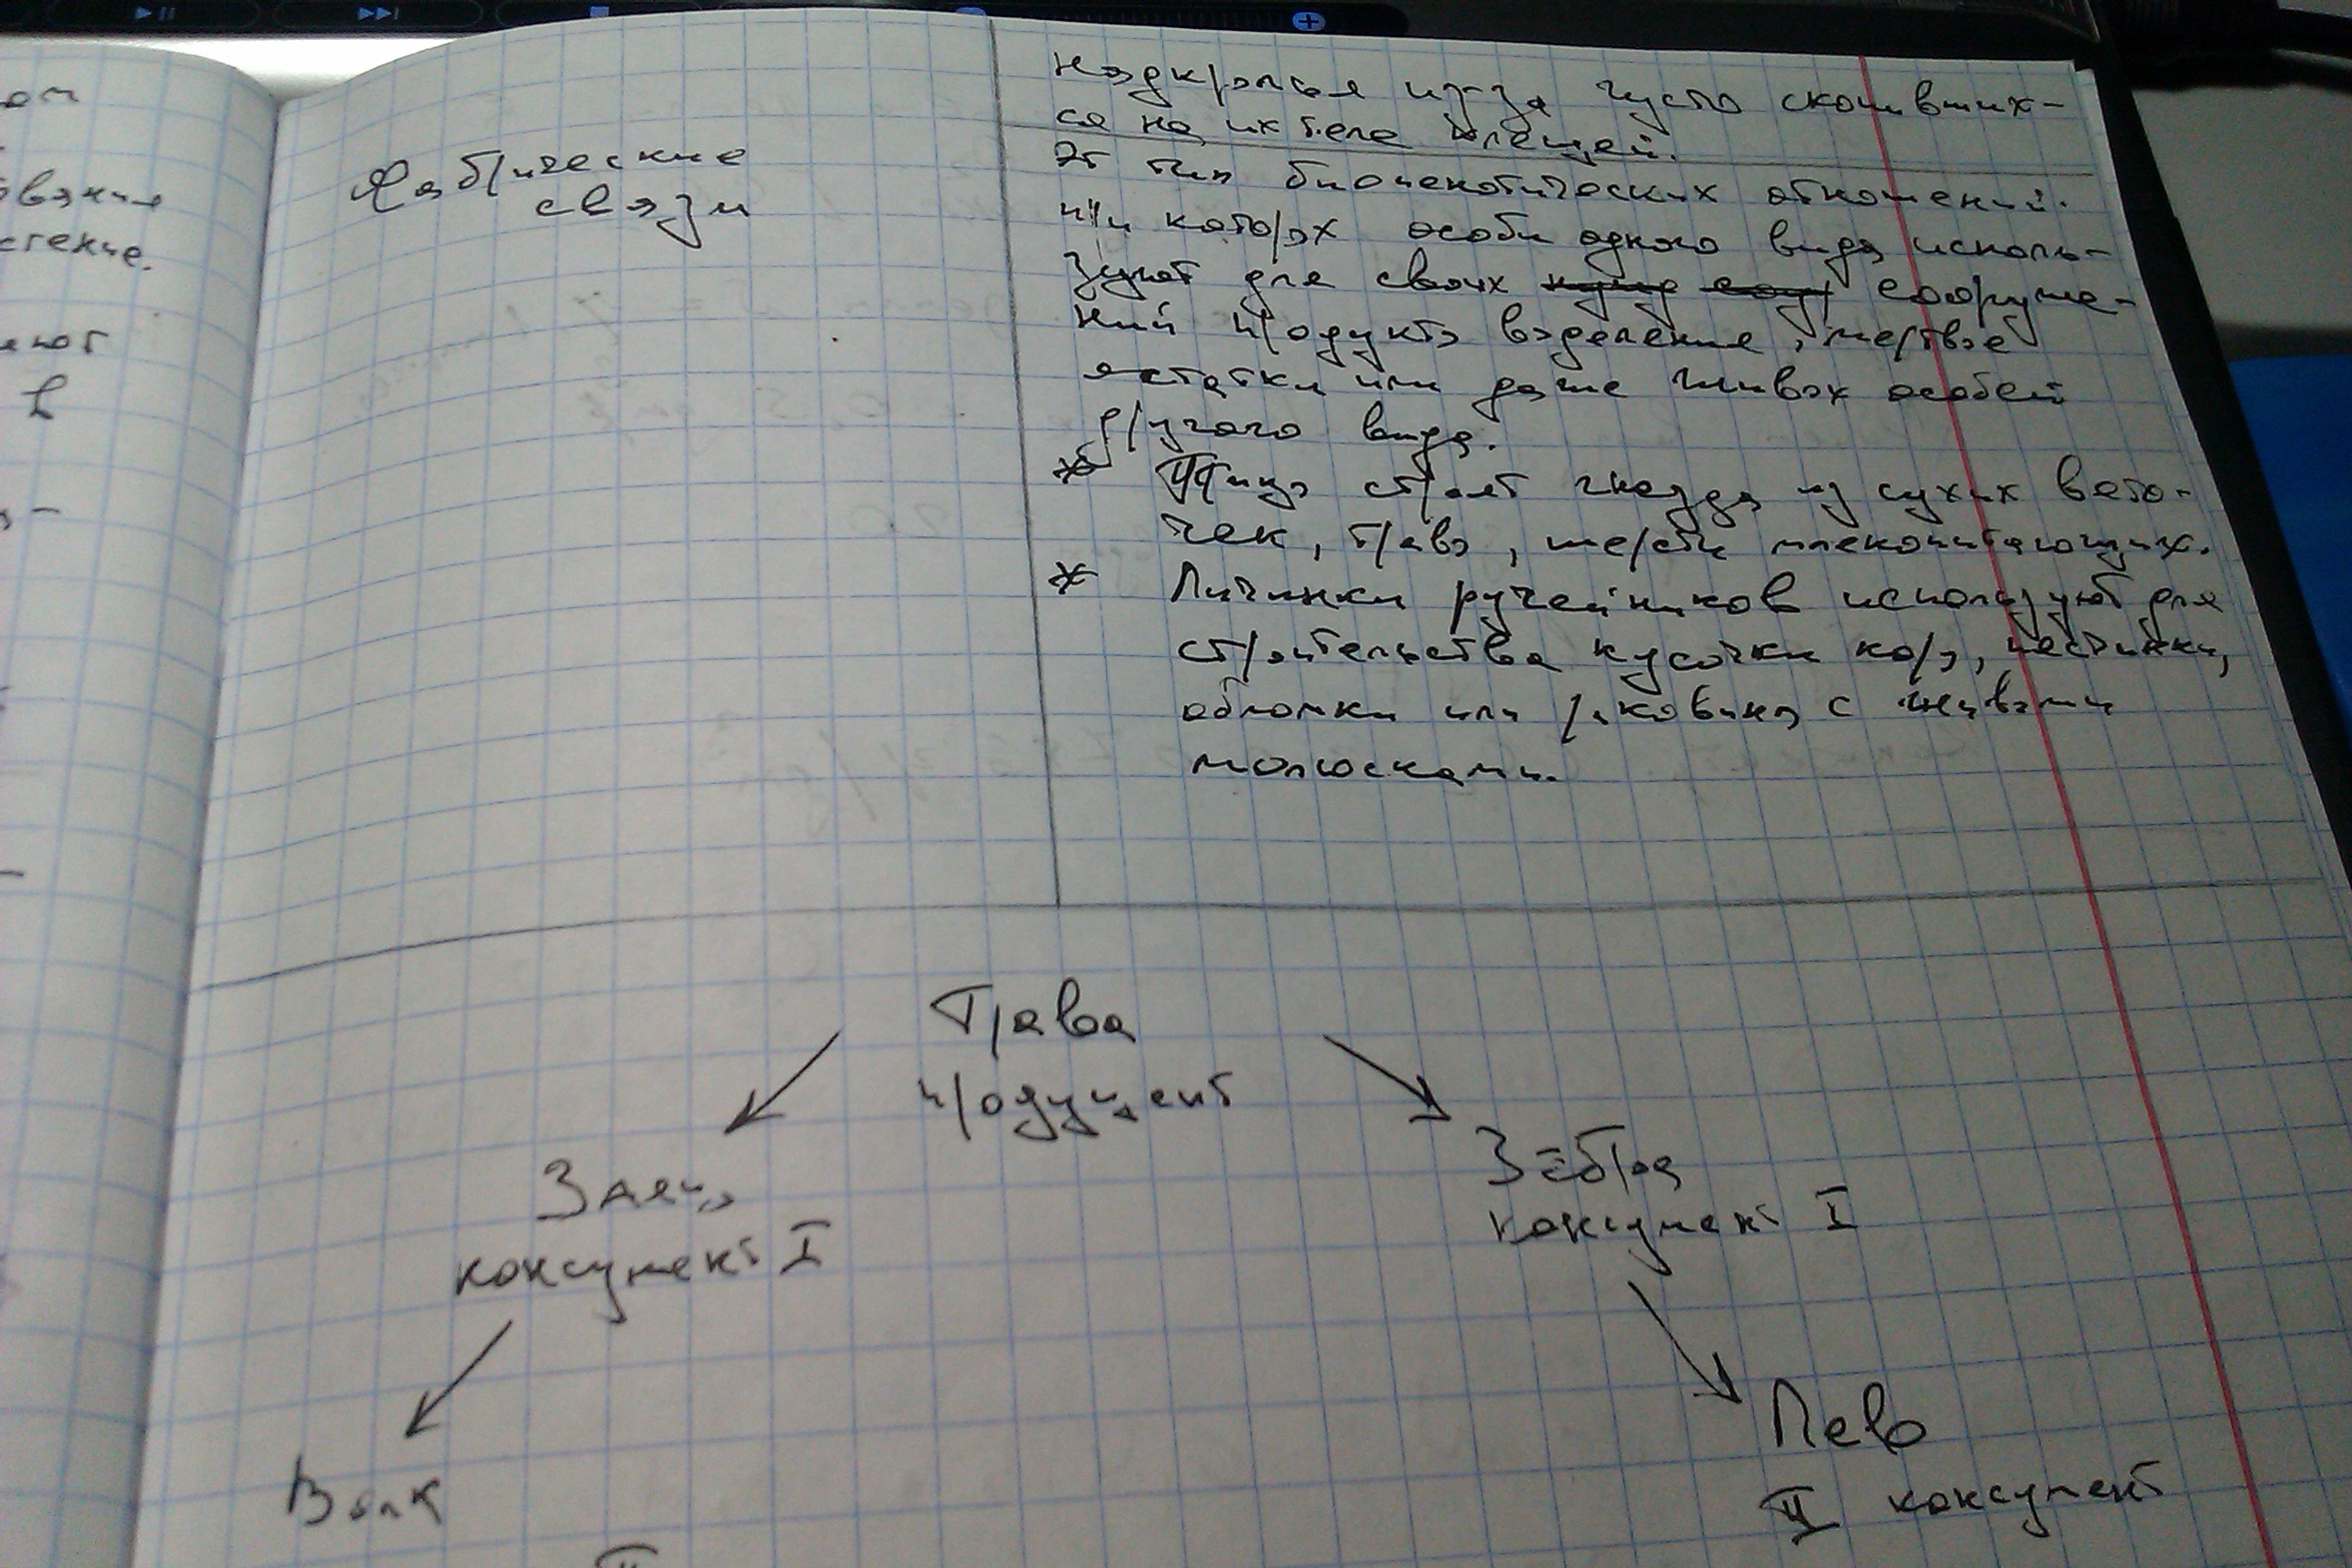 ом
ования
стение.
яют
в
Фабрические
связи
надкрылья из-за густо скопивших-
ся на их теле клещей.
Эт тип биоценотических отношений.
при которых особи одного вида исполь-
зуют для своих сооруже-
ний продукты выделения, мертвые
остатки или даже живых особей
другого вида.
* Птицы строят гнезда из сухих вето-
чек, травы, шерсти млекопитающих.
* Личинки ручейников используют для
строительства кусочки коры, песчинки,
обломки или раковины с живыми
молюсками.
Трава
продуцент
Заяц
консумент I
Зебра
консумент I
Волк
Лев
II консумент
II